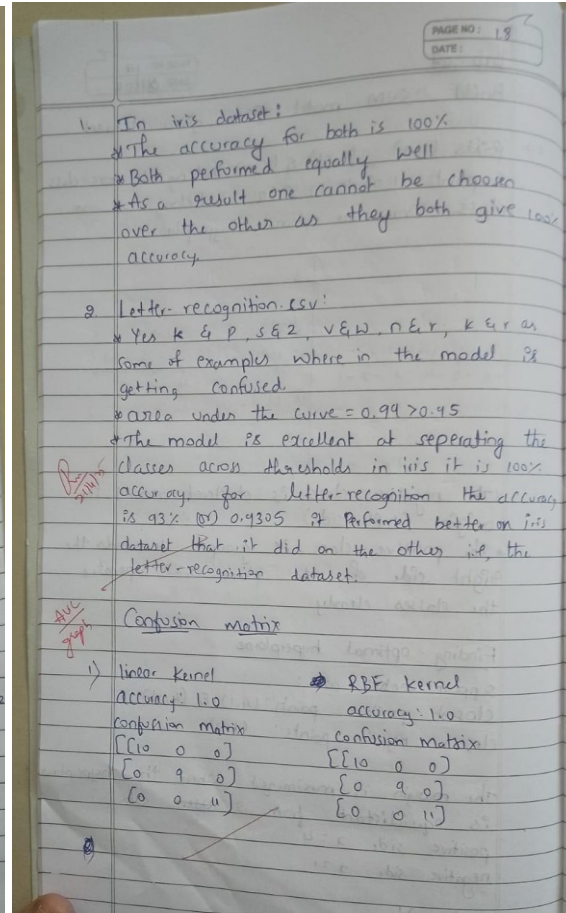 PAGE NO: 18
DATE:
1. In iris dataset:
* The accuracy for both is 100%
* Both performed equally well
* As a result one cannot be choosen
over the other as they both give 100%
accuracy.
2 Letter-recognition.csv:
* Yes k & p, s & z, v & w, n & r, k & r as
some of examples where in the model is
getting confused.
* area under the curve = 0.99 > 0.95
* The model is excellent at seperating the
classes across thresholds in iris it is 100%
accuracy, for letter-recognition the accuracy
is 93% (or) 0.9305 it Performed better on iris
dataset that it did on the other i.e, the
letter-recognition dataset.
AUC
graph
Confusion matrix
1) linear kernel
accuracy: 1.0
confusion matrix
[[10 0 0]
[0 9 0]
[0 0 11]
RBF kernel
accuracy: 1.0
confusion matrix
[[10 0 0]
[0 9 0]
[0 0 11]